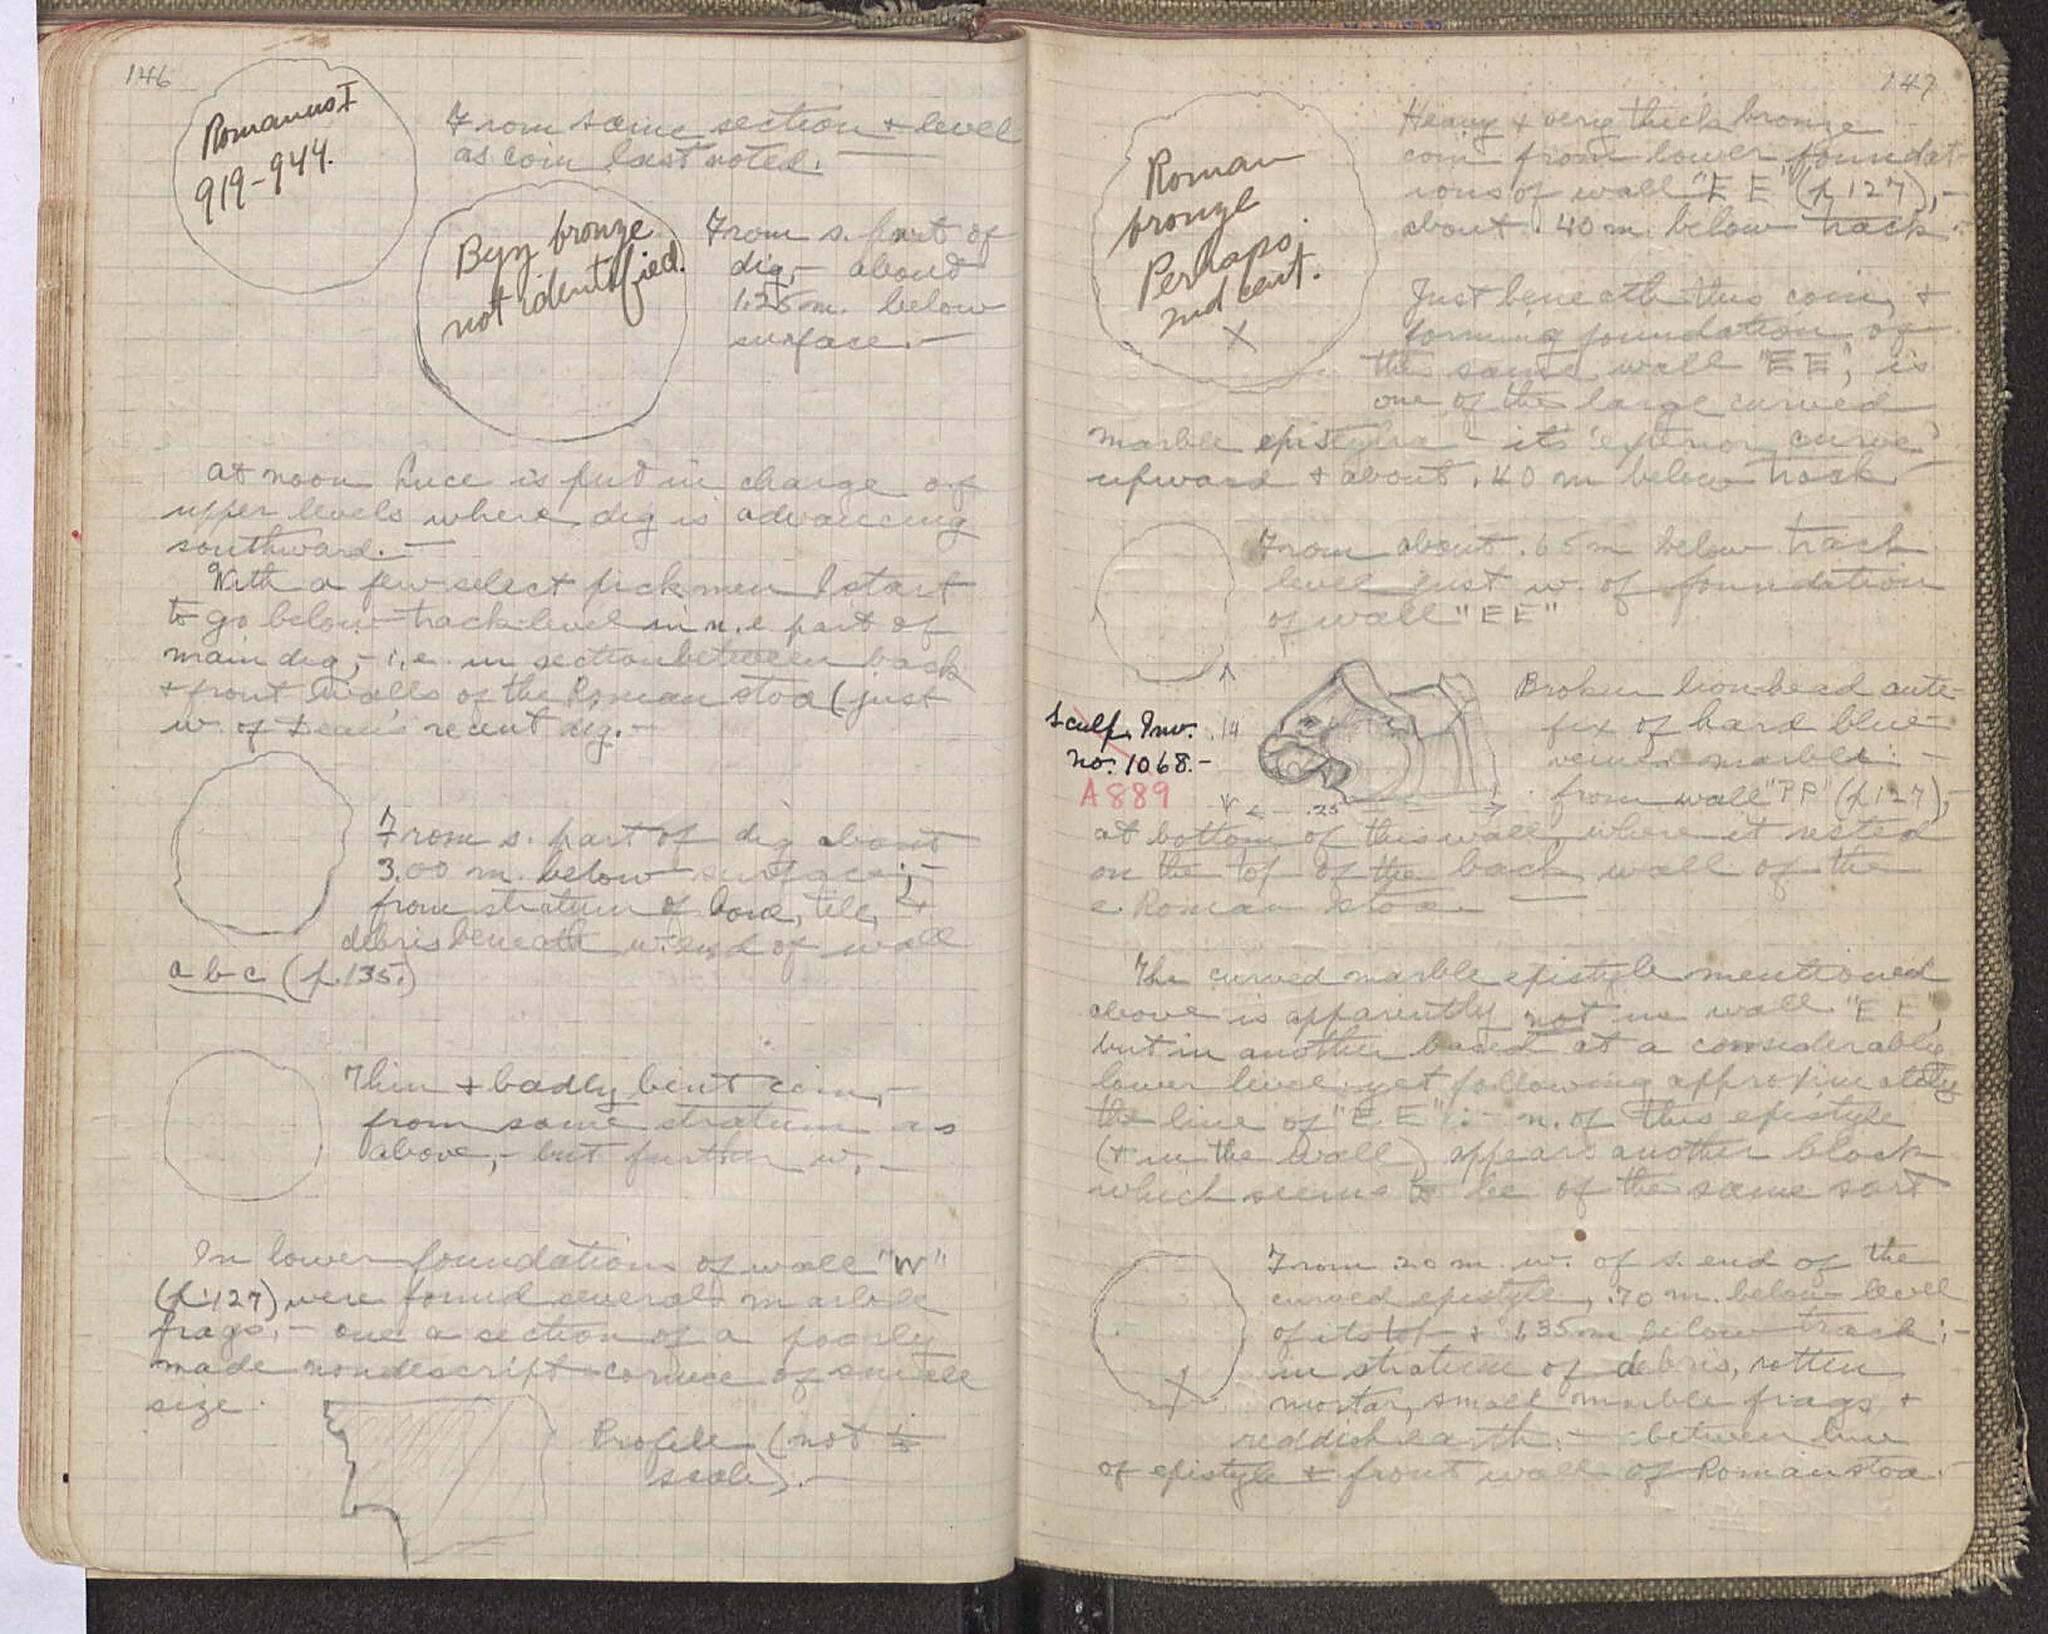 146
Romanus I
919-944.
From same section + level
as coin last noted. —
Byz bronze
not identified.
From s. part of
dig, – about
1.25 m. below
surface. —
At noon Luce is put in charge of
upper levels where dig is advancing
southward. —
With a few select pickmen I start
to go below track level in n.e. part of
main dig, – i.e. in section between back
+ front walls of the Roman stoa (just
w. of Dean's recent dig. —
From s. part of dig about
3.00 m. below surface; –
from stratum of bone, tile, +
debris beneath w. end of wall
abc (p. 135.)
Thin + badly bent coin, –
from same stratum as
above, – but further w. —
In lower foundations of wall "W"
(p. 127) were found several marble
frags, – one a section of a poorly
made nondescript cornice of small
size.
Profile (not to
scale). —
147
Roman
bronze
Perhaps
2nd cent.
X
Heavy + very thick bronze
coin from lower foundat-
ions of wall "EE" (p 127), –
about .40 m below track. –
Just beneath this coin, +
forming foundation of
the same wall "EE", is
one of the large curved
marble epistylia – its 'exterior curve'
upward + about .40 m below track –
From about .65 m below track
level just w. of foundation
of wall "EE"
Sculp. Inv.
no. 1068. –
A 889
.14
.25
Broken lionhead ante-
fix of hard blue-
veined marble: –
from wall "PP" (p 127), –
at bottom of this wall, where it rested
on the top of the back wall of the
e. Roman stoa. —
The curved marble epistyle mentioned
above is apparently not in wall "EE",
but in another based at a considerably
lower level yet following approximately
the line of "EE": – n. of this epistyle
(+ in the wall) appears another block
which seems to be of the same sort
From .20 m. w. of s. end of the
curved epistyle, .70 m. below level
of its top + 1.35 m below track; –
in stratum of debris, rotten
mortar, small marble frags +
reddish earth: – between line
of epistyle + front wall of Roman stoa. –
X